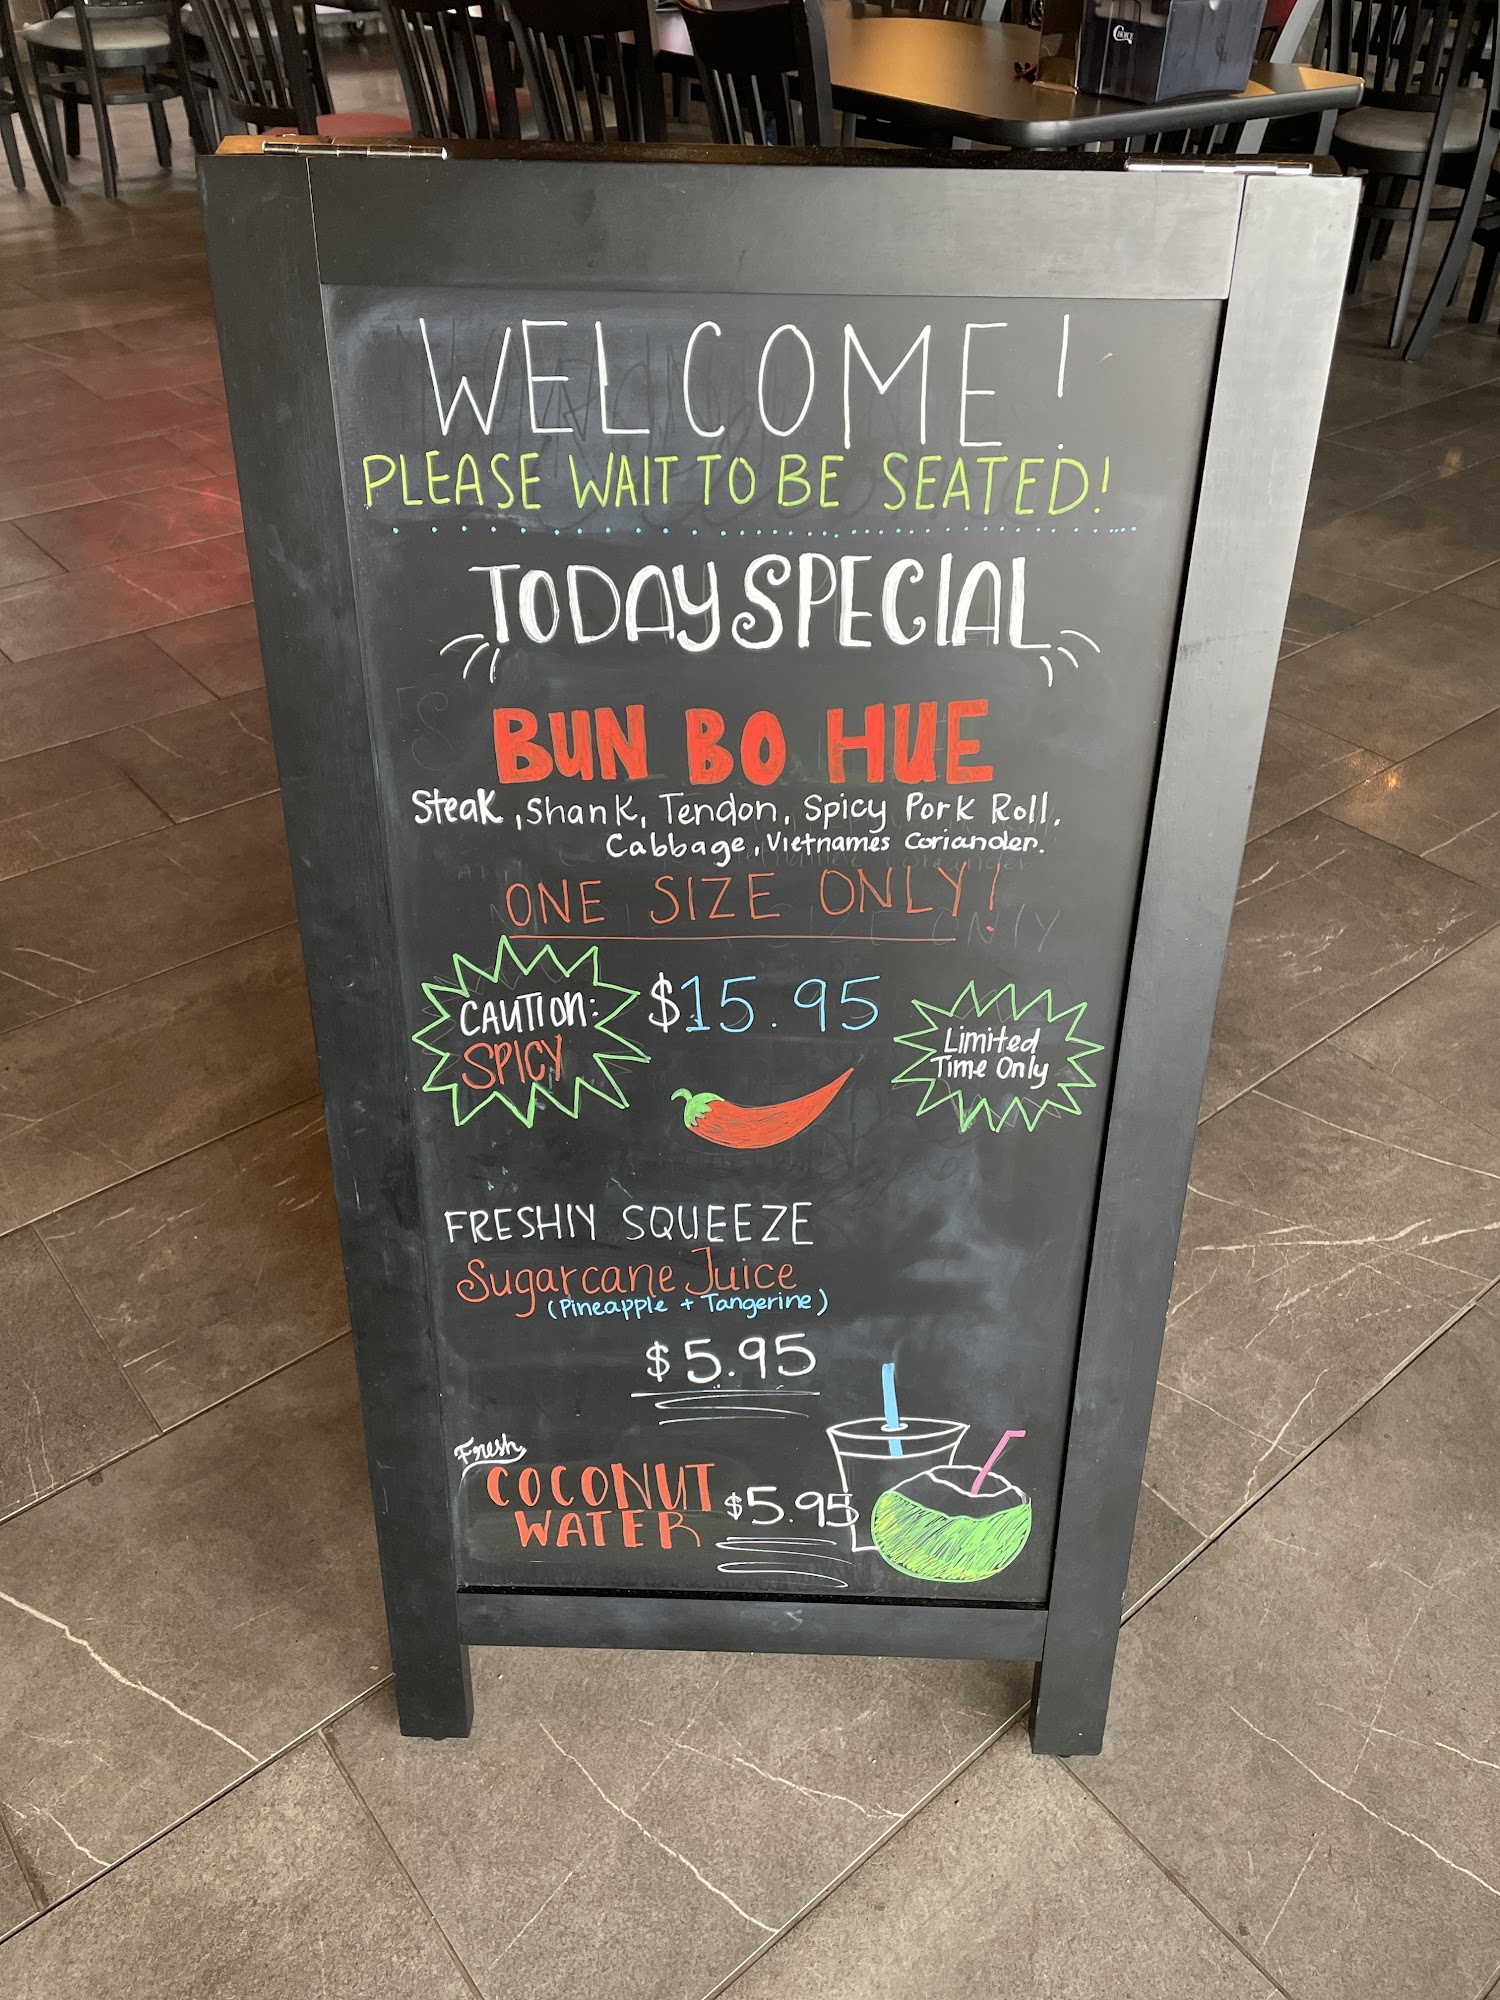 WELCOME!
PLEASE WAIT TO BE SEATED!
TODAY SPECIAL
BUN BO HUE
Steak, Shank, Tendon, Spicy Pork Roll,
Cabbage, Vietnames Coriander.
ONE SIZE ONLY!
CAUTION:
SPICY
$15.95
Limited
Time Only
FRESHLY SQUEEZE
Sugarcane Juice
(Pineapple + Tangerine)
$5.95
Fresh
COCONUT
WATER
$5.95